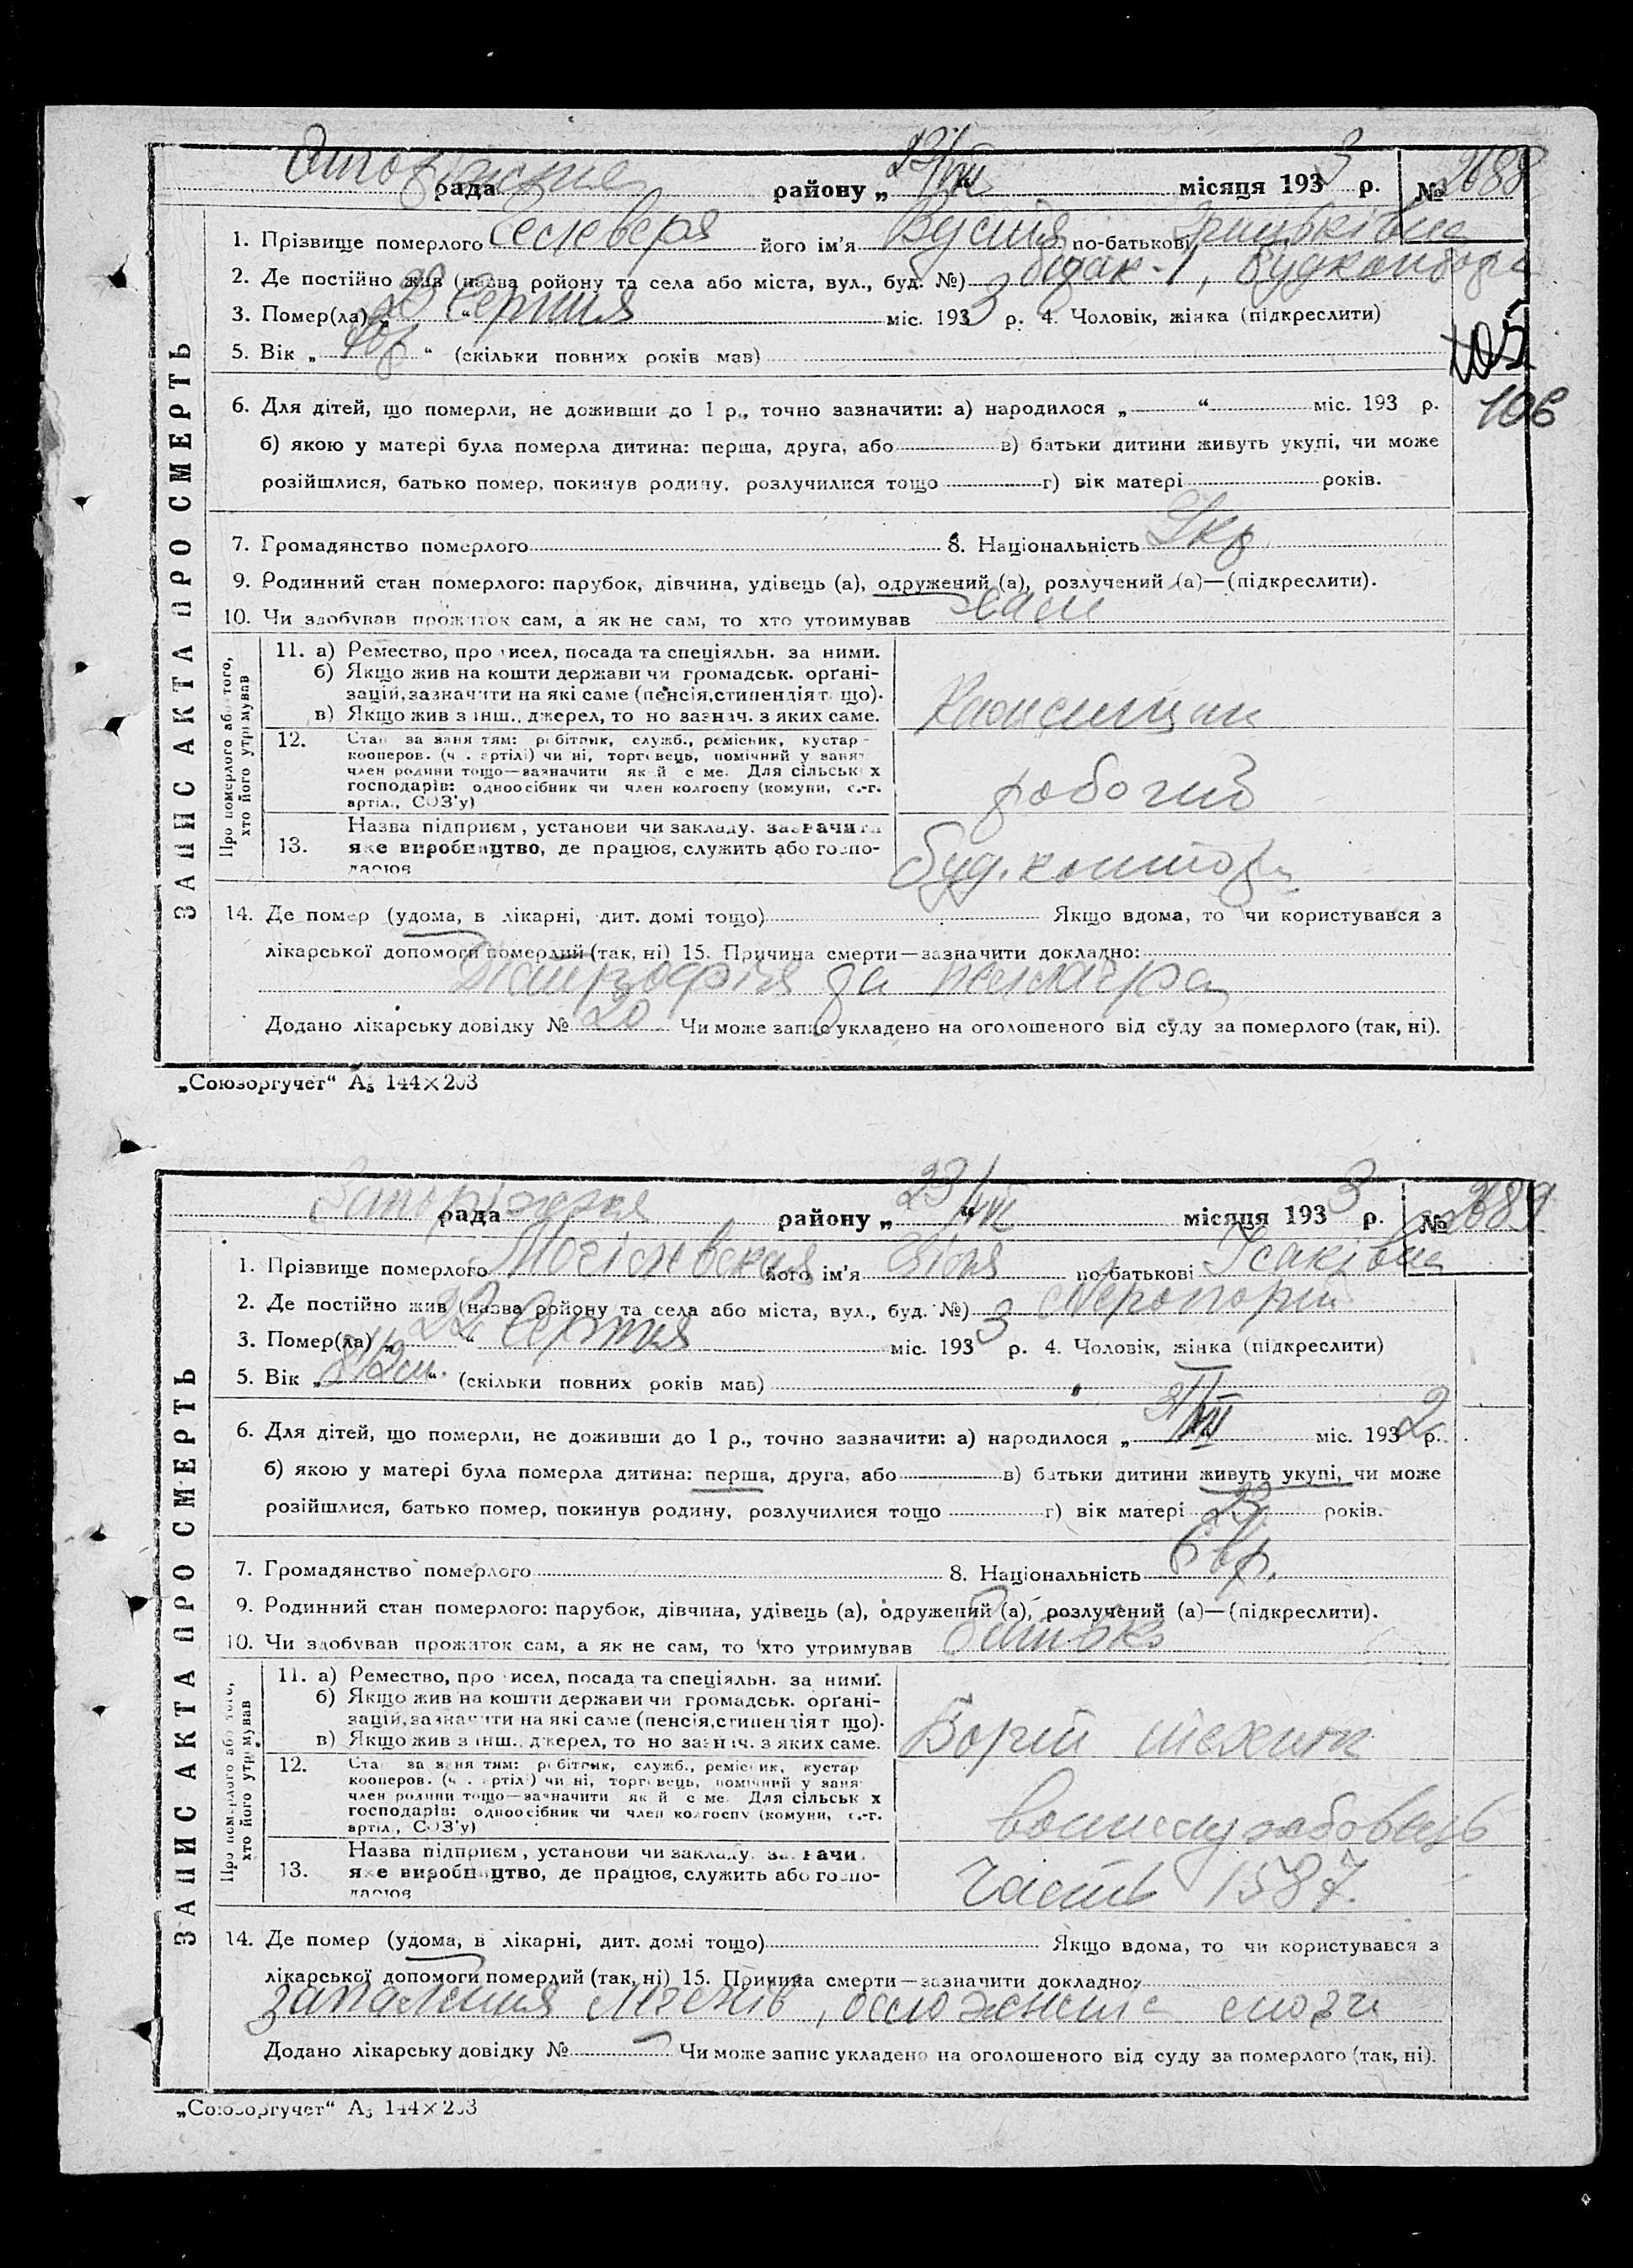 рада району „23/VIII“ місяця 1933 р. № 2688
1. Прізвище померлого його ім'я Вустя по-батькові Грицьківна
2. Де постійно жив (назва ройону та села або міста, вул., буд. №) барак-1, Будконтора
3. Помер(ла) „20“ Серпня міс. 1933 р. 4. Чоловік, жінка (підкреслити)
105
5. Вік „40 р“ (скільки повних років мав)
106
6. Для дітей, що померли, не доживши до 1 р., точно зазначити: а) народилося „ “ міс. 193 р.
б) якою у матері була померла дитина: перша, друга, або в) батьки дитини живуть укупі, чи може
розійшлися, батько помер, покинув родину, розлучилися тощо г) вік матері років.
7. Громадянство померлого 8. Національність Укр
9. Родинний стан померлого: парубок, дівчина, удівець (а), одружений (а), розлучений (а)—(підкреслити).
10. Чи здобував прожиток сам, а як не сам, то хто утримував сам
ЗАПИС АКТА ПРО СМЕРТЬ
Про померлого або того,
хто його утримував
11. а) Ремество, промисел, посада та спеціяльн. за ними.
б) Якщо жив на кошти держави чи громадськ. орґані-
зацій, зазначити на які саме (пенсія, стипендія т що).
в) Якщо жив з інш., джерел, то но зазнач. з яких саме.
12. Стан за заняттям: робітник, служб., ремісник, кустар-
кооперов. (ч. артілі) чи ні, торговець, помічний у занят
член родини тощо—зазначити який саме. Для сільських
господарів: одноосібник чи член колгоспу (комуни, с.-г.
артіл., СОЗ'у)
робочий
Назва підприєм, установи чи закладу, зазначити
13. яке виробництво, де працює, служить або госпо-
дарює
буд. контора
14. Де помер (удома, в лікарні, дит. домі тощо) Якщо вдома, то чи користувався з
лікарської допомоги померлий (так, ні) 15. Причина смерти—зазначити докладно:
Дістрофія да пеллагра
Додано лікарську довідку № 20 Чи може запис укладено на оголошеного від суду за померлого (так, ні).
„Союзоргучет“ А5 144×203
Запоріжжя рада району „23/VIII“ місяця 1933 р. № 2689
1. Прізвище померлого Могілевская його ім'я по-батькові Ісаківна
2. Де постійно жив (назва ройону та села або міста, вул., буд. №) Аеропорт
3. Помер(ла) „22“ Серпня міс. 1933 р. 4. Чоловік, жінка (підкреслити)
5. Вік „ “ (скільки повних років мав)
6. Для дітей, що померли, не доживши до 1 р., точно зазначити: а) народилося „ “ міс. 1932 р.
б) якою у матері була померла дитина: перша, друга, або в) батьки дитини живуть укупі, чи може
розійшлися, батько помер, покинув родину, розлучилися тощо г) вік матері 23 років.
7. Громадянство померлого 8. Національність Євр.
9. Родинний стан померлого: парубок, дівчина, удівець (а), одружений (а), розлучений (а)—(підкреслити).
10. Чи здобував прожиток сам, а як не сам, то хто утримував батько
ЗАПИС АКТА ПРО СМЕРТЬ
Про померлого або того,
хто його утримував
11. а) Ремество, промисел, посада та спеціяльн. за ними.
б) Якщо жив на кошти держави чи громадськ. орґані-
зацій, зазначити на які саме (пенсія, стипендія т що).
в) Якщо жив з інш., джерел, то но зазнач. з яких саме.
Борт технік
12. Стан за заняттям: робітник, служб., ремісник, кустар
кооперов. (ч. артілі) чи ні, торговець, помічний у занят
член родини тощо—зазначити який саме. Для сільських
господарів: одноосібник чи член колгоспу (комуни, с.-г.
артіл., СОЗ'у)
Назва підприєм, установи чи закладу, зазначи
13. яке виробництво, де працює, служить або госпо-
дарює
Часть 1587.
14. Де помер (удома, в лікарні, дит. домі тощо) Якщо вдома, то чи користувався з
лікарської допомоги померлий (так, ні) 15. Причина смерти—зазначити докладно:
запалення легенів, мозги
Додано лікарську довідку № Чи може запис укладено на оголошеного від суду за померлого (так, ні).
„Союзоргучет“ А5 144×203